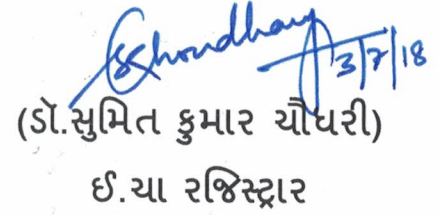 SKChoudhary 3/7/18
(ડૉ.સુમિત કુમાર ચૌધરી)
ઈ.ચા રજિસ્ટ્રાર